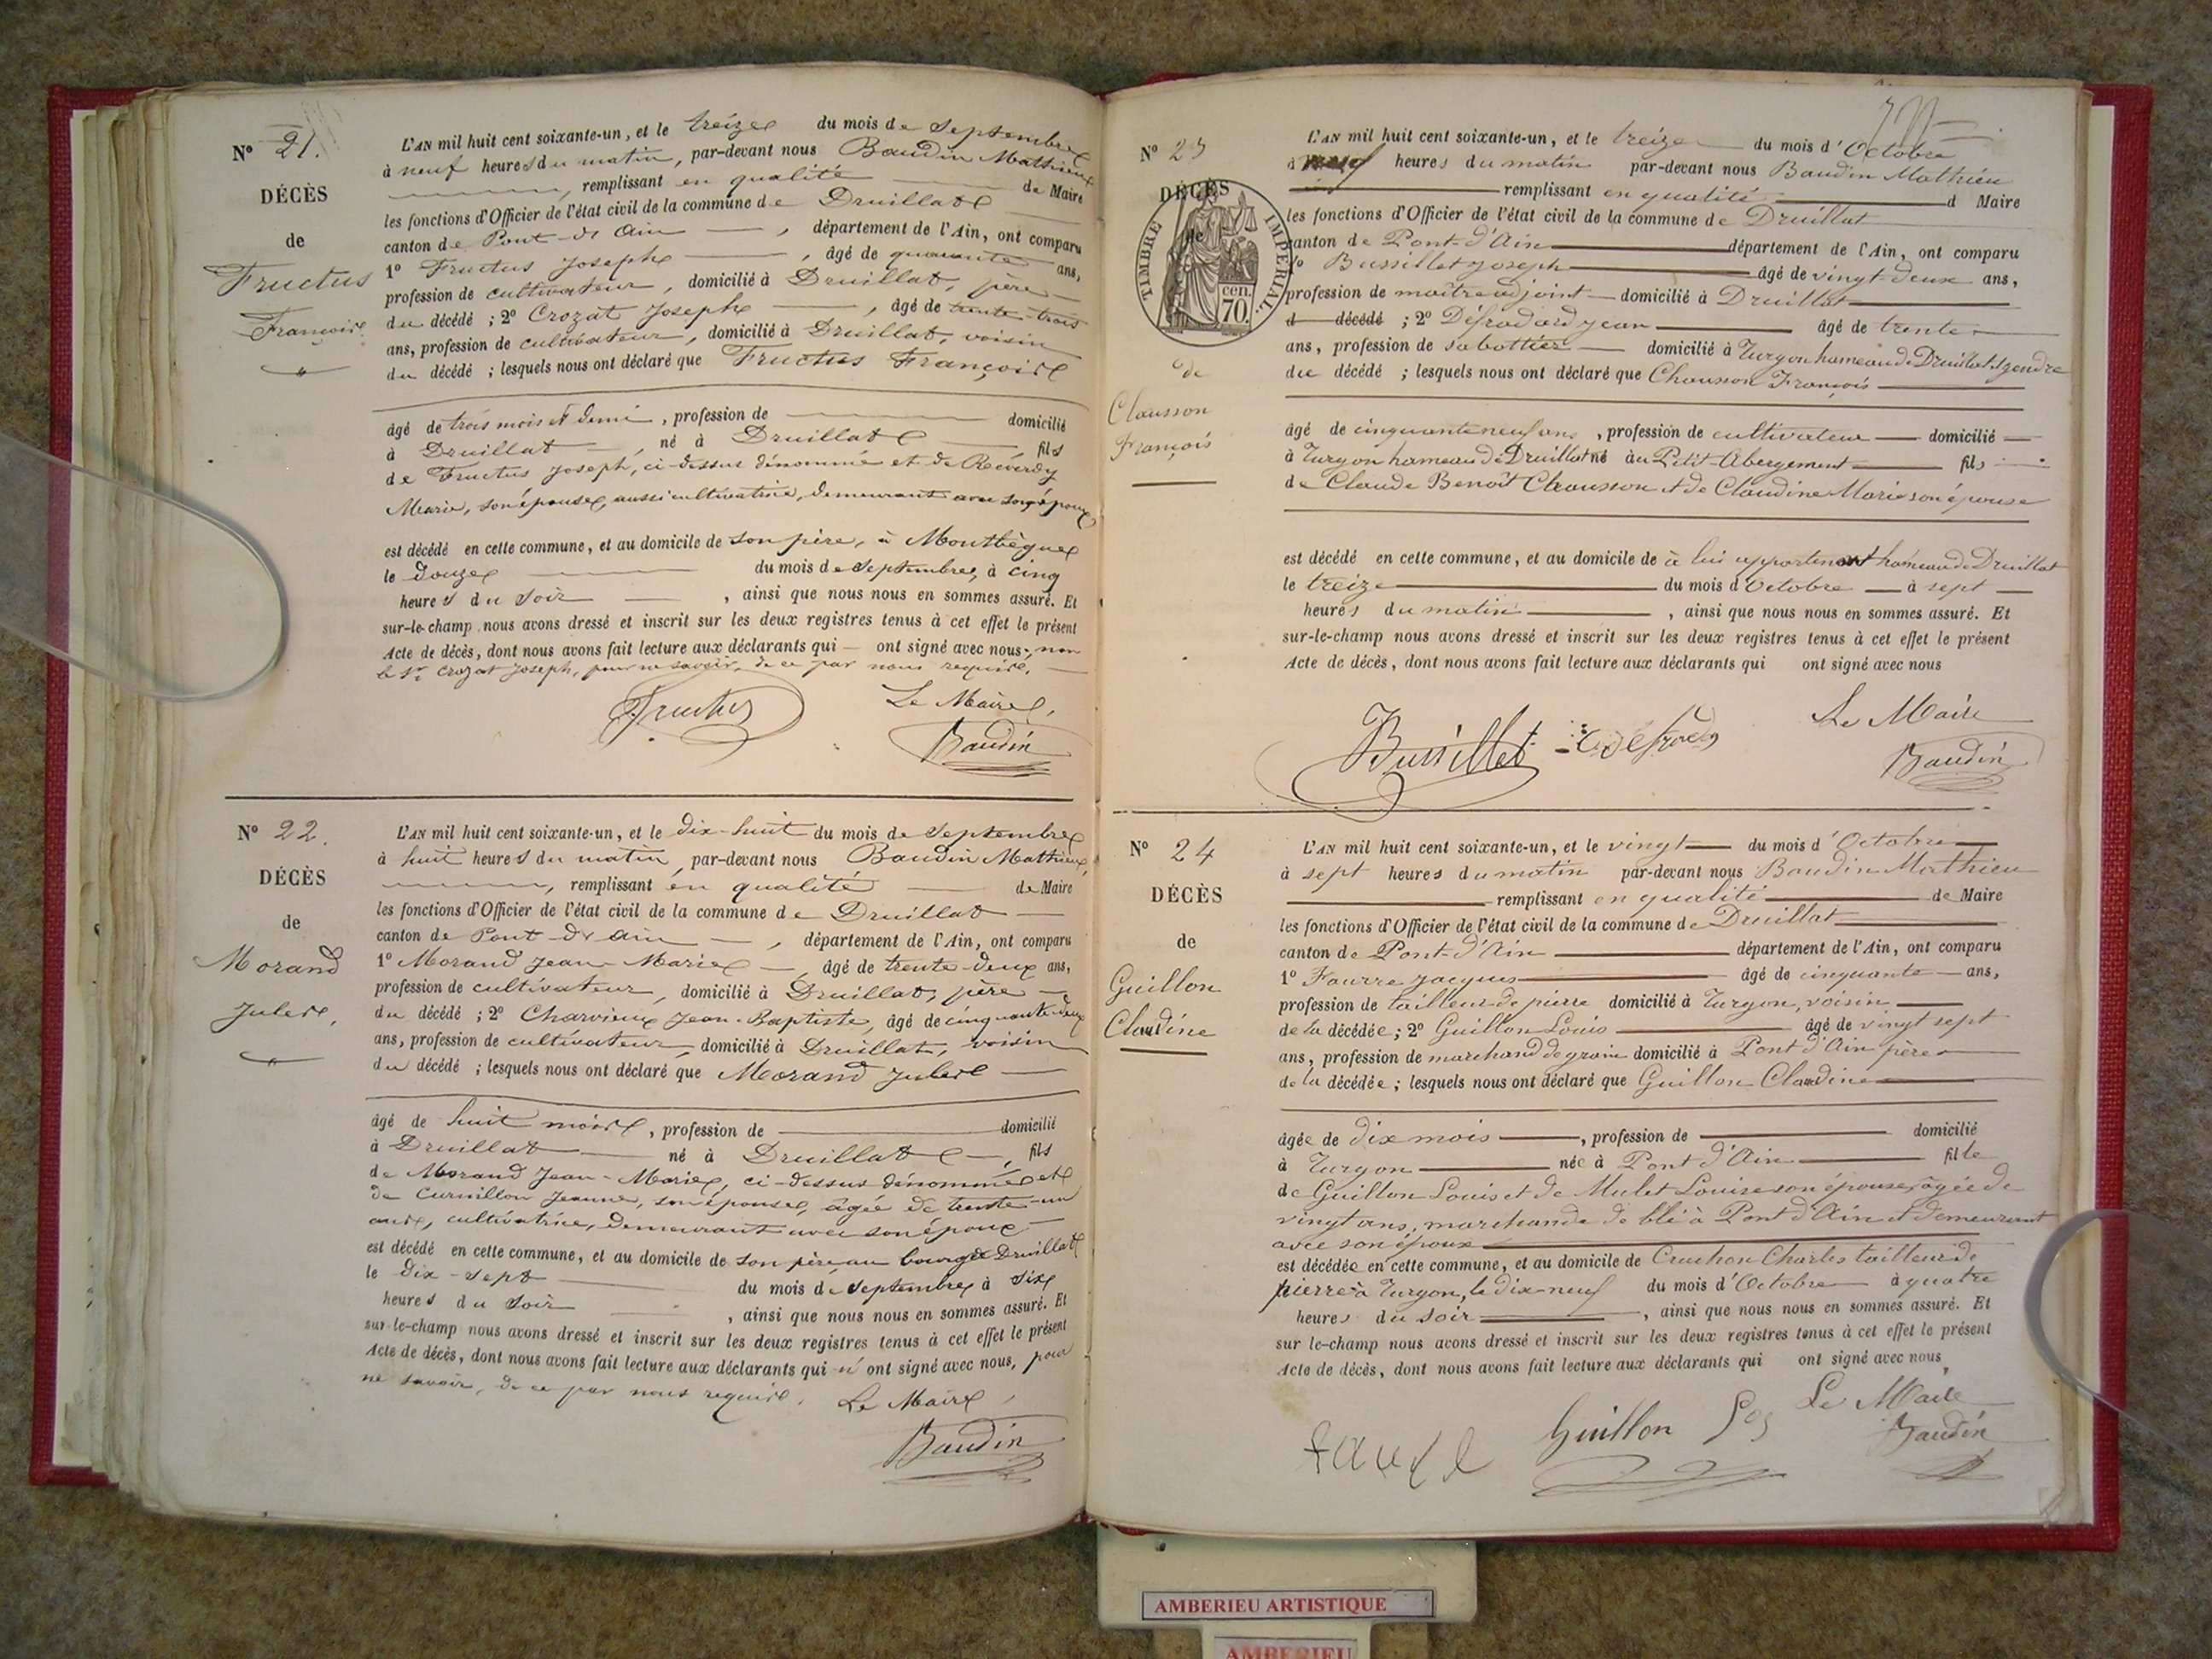 N° 21.
DÉCÈS
de
Fructus
François
L'AN mil huit cent soixante-un, et le treize du mois de Septembre
à neuf heures du matin, par-devant nous Baudin Mathieu
, remplissant en qualité de Maire
les fonctions d'Officier de l'état civil de la commune de Druillat
canton de Pont-d'Ain , département de l'Ain, ont comparu
1° Fructus Joseph , âgé de quarante ans,
profession de cultivateur, domicilié à Druillat, père
du décédé ; 2° Crozat Joseph , âgé de trente-trois
ans, profession de cultivateur, domicilié à Druillat, voisin
du décédé ; lesquels nous ont déclaré que Fructus François
âgé de trois mois et demi, profession de domicilié
à Druillat , né à Druillat fils
de Fructus Joseph, ci-dessus dénommé et de Réverdy
Marie, son épouse, aussi cultivatrice, demeurant avec son époux
est décédé en cette commune, et au domicile de son père, à Monthègue
le douze du mois de Septembre, à cinq
heures du soir , ainsi que nous nous en sommes assuré. Et
sur-le-champ nous avons dressé et inscrit sur les deux registres tenus à cet effet le présent
Acte de décès, dont nous avons fait lecture aux déclarants qui ont signé avec nous, non
le Sr Crozat Joseph, pour ne savoir, de ce par nous requis.
Fructus
Le Maire,
Baudin
N° 22.
DÉCÈS
de
Morand
Jules.
L'AN mil huit cent soixante-un, et le dix-huit du mois de Septembre
à huit heures du matin, par-devant nous Baudin Mathieu,
, remplissant en qualité de Maire
les fonctions d'Officier de l'état civil de la commune de Druillat
canton de Pont-d'Ain , département de l'Ain, ont comparu
1° Morand Jean-Marie , âgé de trente-deux ans,
profession de cultivateur, domicilié à Druillat, père
du décédé ; 2° Charvieux Jean-Baptiste, âgé de cinquante-deux
ans, profession de cultivateur, domicilié à Druillat, voisin
du décédé ; lesquels nous ont déclaré que Morand Jules
âgé de huit mois, profession de domicilié
à Druillat né à Druillat , fils
de Morand Jean-Marie, ci-dessus dénommé et
de Curnillon Jeanne, son épouse, âgée de trente-un
ans, cultivatrice, demeurant avec son époux
est décédé en cette commune, et au domicile de son père, au bourg de Druillat
le dix-sept du mois de Septembre, à six
heures du soir , ainsi que nous nous en sommes assuré. Et
sur-le-champ nous avons dressé et inscrit sur les deux registres tenus à cet effet le présent
Acte de décès, dont nous avons fait lecture aux déclarants qui n'ont signé avec nous, pour
ne savoir, de ce par nous requis. Le Maire,
Baudin
N° 23
DÉCÈS
de
TIMBRE IMPÉRIAL.
cen.
70.
de
Chausson
François
L'AN mil huit cent soixante-un, et le treize du mois d'Octobre
à neuf heures du matin par-devant nous Baudin Mathieu
remplissant en qualité d Maire
les fonctions d'Officier de l'état civil de la commune de Druillat
canton de Pont-d'Ain département de l'Ain, ont comparu
1° Bussillet Joseph âgé de vingt-deux ans,
profession de maître adjoint domicilié à Druillat
d décédé ; 2° Défradard Jean âgé de trente
ans, profession de sabottier domicilié à Turgon hameau de Druillat, gendre
du décédé ; lesquels nous ont déclaré que Chausson François
âgé de cinquante neuf ans, profession de cultivateur domicilié
à Turgon hameau de Druillat né au Petit-Abergement fils
de Claude Benoît Chausson et de Claudine Marie son épouse
est décédé en cette commune, et au domicile de à lui appartenant hameau de Druillat
le treize du mois d'Octobre à sept
heures du matin , ainsi que nous nous en sommes assuré. Et
sur-le-champ nous avons dressé et inscrit sur les deux registres tenus à cet effet le présent
Acte de décès, dont nous avons fait lecture aux déclarants qui ont signé avec nous
Bussillet
Le Maire
Baudin
N° 24
DÉCÈS
de
Guillon
Claudine
L'AN mil huit cent soixante-un, et le vingt du mois d'Octobre
à sept heures du matin par-devant nous Baudin Mathieu
remplissant en qualité de Maire
les fonctions d'Officier de l'état civil de la commune de Druillat
canton de Pont-d'Ain département de l'Ain, ont comparu
1° Faurre Jacques âgé de cinquante ans,
profession de tailleur de pierre domicilié à Turgon, voisin
de la décédée ; 2° Guillon Louis âgé de vingt sept
ans, profession de marchand de grain domicilié à Pont d'Ain père
de la décédée ; lesquels nous ont déclaré que Guillon Claudine
âgée de dix mois , profession de domicilié
à Turgon née à Pont d'Ain fille
de Guillon Louis et de Mulet Louise son épouse, âgée de
vingt ans, marchande de blé à Pont d'Ain et demeurant
avec son époux
est décédée en cette commune, et au domicile de Cruchon Charles tailleur de
pierre à Turgon, le dix-neuf du mois d'Octobre à quatre
heures du soir , ainsi que nous nous en sommes assuré. Et
sur le-champ nous avons dressé et inscrit sur les deux registres tenus à cet effet le présent
Acte de décès, dont nous avons fait lecture aux déclarants qui ont signé avec nous,
Guillon
Le Maire
Baudin
AMBERIEU ARTISTIQUE
AMBERIEU